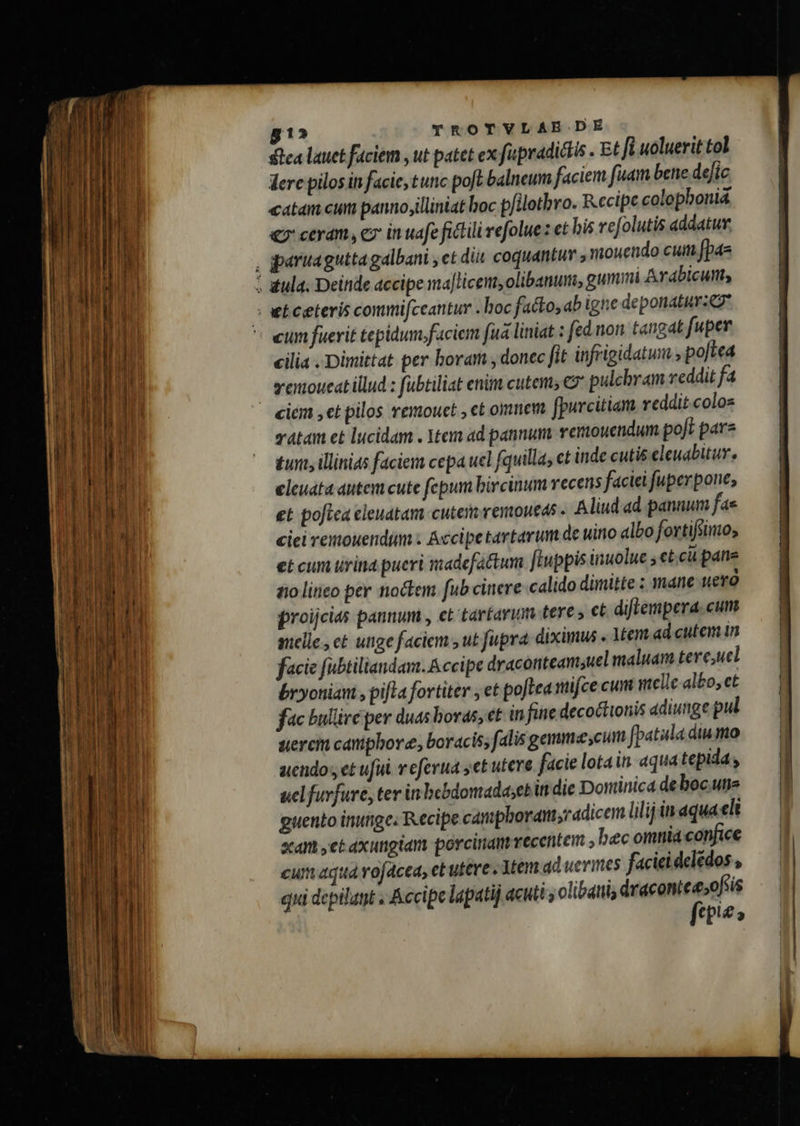 TROTVLAE DE
stea lauet faciem, ut patet ex supradictis. Et si uoluerit tol
lere pilos in facie, tunc post balneum faciem suam bene desic
catam cum panno, illiniat hoc psilothro. Recipe colophoniã
& ceram, & in uase fictili resolue: et his resolutis addatur
parua gutta galbani, et diu coquantur, mouendo cum spa=
tula. Deinde accipe masticem, olibanum, gummi Arabicum,
et cæteris commisceantur. hoc facto, ab igne deponatur: &
cum fuerit tepidum, faciem suã liniat: sed non tangat super
cilia. Dimittat per horam, donec sit infrigidatum, postea
remoueat illud: subtiliat enim cutem, & pulchram reddit fa
ciem, et pilos remouet, et omnem spurcitiam reddit colo=
ratam et lucidam. Item ad pannum remouendum post par=
tum, illinias faciem cepa uel squilla, et inde cutis eleuabitur.
eleuata autem cute sepum hircinum recens faciei superpone,
et postea eleuatam cutem remoueas. Aliud ad pannum fa=
ciei remouendum. Accipe tartarum de uino albo fortissimo,
et cum urina pueri madefactum stuppis inuolue, et cũ pan=
no lineo per noctem sub cinere calido dimitte: mane uerò
proijcias pannum, et tartarum tere, et distempera cum
melle, et unge faciem, ut supra diximus. Item ad cutem in
facie subtiliandam. Accipe draconteam, uel maluam tere, uel
bryoniam, pista fortiter, et postea misce cum melle albo, et
fac bullire per duas horas, et in fine decoctionis adiunge pul
uerem camphoræ, boracis, salis gemmæ, cum spatula diu mo
uendo, et usui reserua, et utere facie lota in aqua tepida,
uel furfure, ter in hebdomada, et in die Dominica de hoc un=
guento inunge. Recipe camphoram, radicem lilij in aqua eli
xam, et axungiam porcinam recentem, hæc omnia confice
cum aqua rosacea, et utere. Item ad uermes faciei delẽdos,
qui depilant. Accipe lapatij acuti, olibani, draconteæ, ossis
sepiæ,